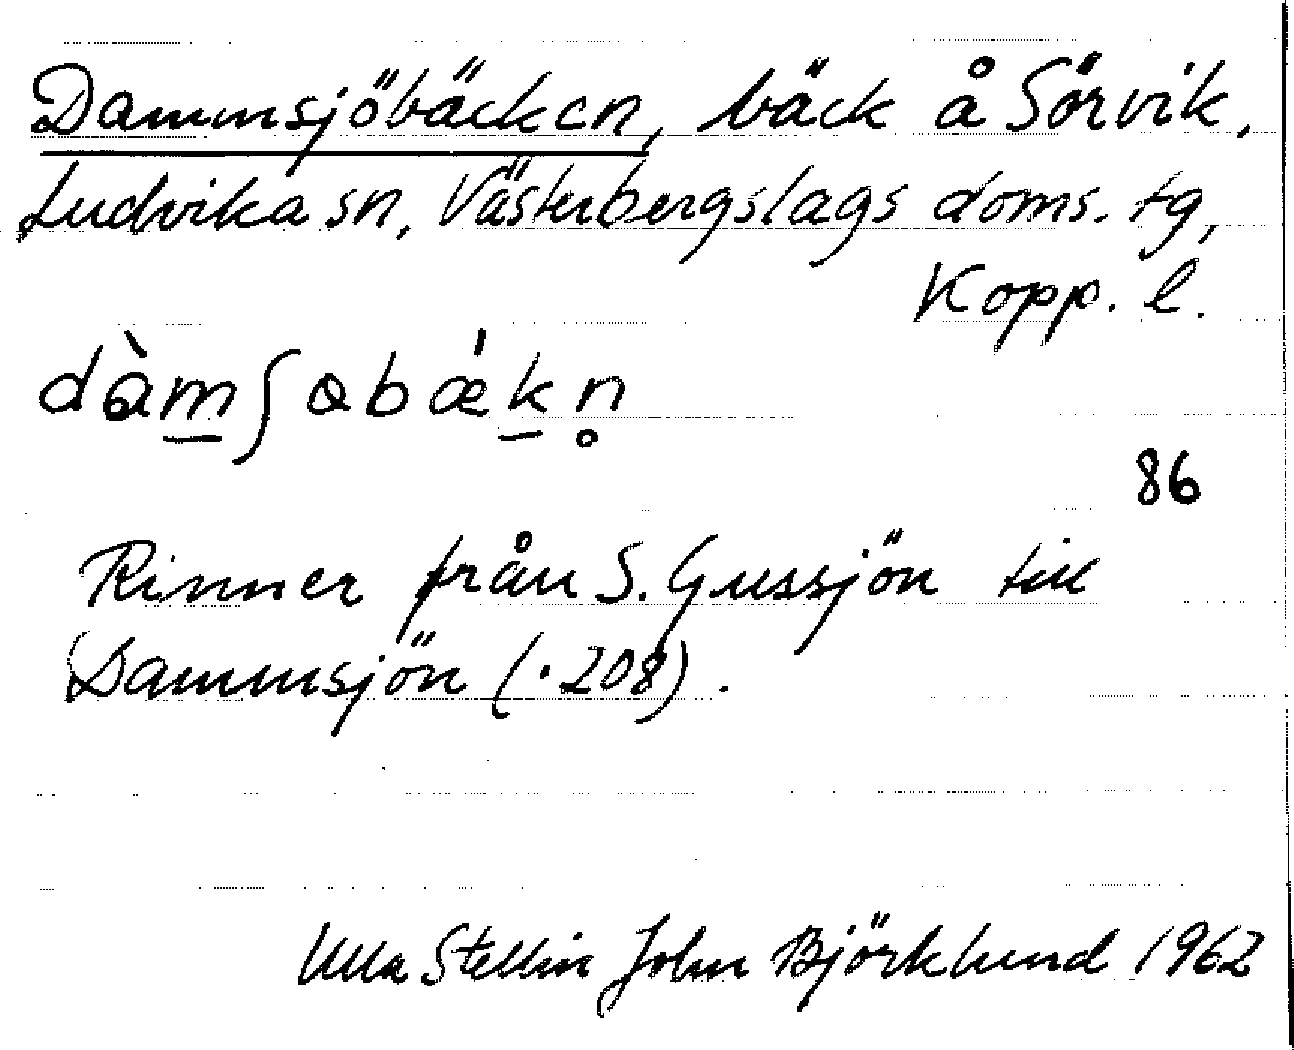 Dammsjöbäcken, bäck å Sörvik,
Ludvika sn, Västerbergslags doms. tg,
Kopp. l.
dàm̲ʃɵbǽk̲n̥
86
Rinner från S. Gussjön till
Dammsjön (·208).
Ulla Stellin John Björklund 1962